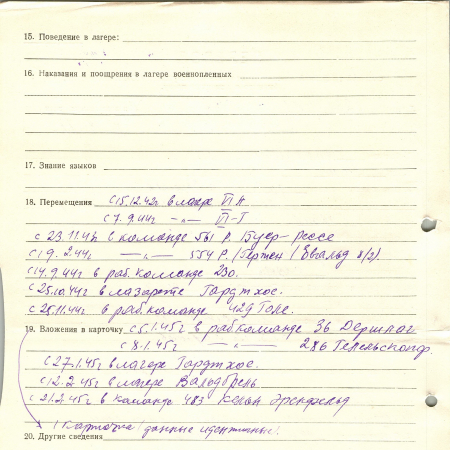 15. Поведение в лагере:
16. Наказания и поощрения в лагере военнопленных
17. Знание языков
18. Перемещения с 15.12.42г в лагере VI А.
с 7.9.44г —"— VI-Г
с 23.11.42 в команде 561 Р. Буер-Рессе
с 9.2.44г —"— 554 Р. (Гертен / Евальд 1/2).
с 14.9.44г в раб. команде 230.
с 25.10.44г в лазарете Гардтхое.
с 25.11.44г в раб. команде 429
19. Вложения в карточку с 5.1.45г в раб команде 36 Дершлаг
с 8.1.45г — 286
с 27.1.45г в лагере Гардтхое.
с 12.2.45г в лагере Вальдбрель
с 21.2.45г в команде 483 Кельн Эренфельд
1 карточка (данные идентичны).
20. Другие сведения